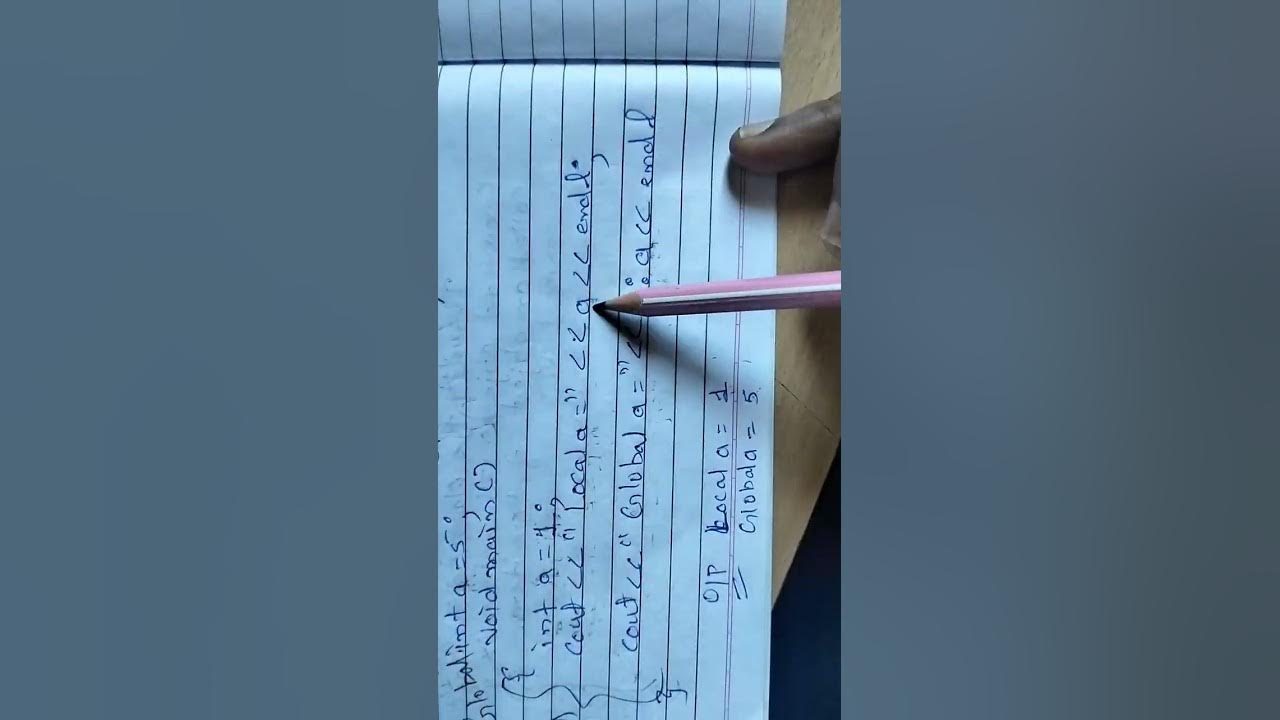 int a = 5;
void main()
{
int a = 1;
cout << " Local a = " << a << endl;
cout << " Global a = " << :: a << endl
}
O/P Local a = 1
Global a = 5